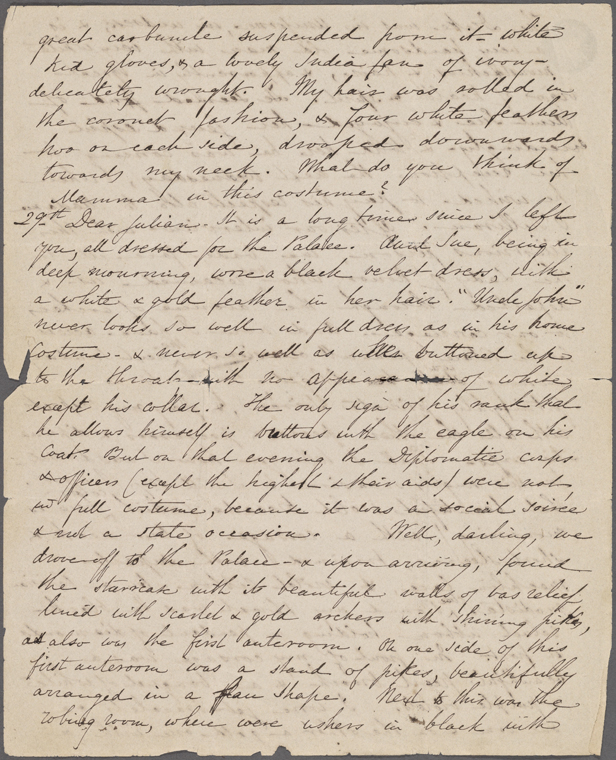 great carbuncle suspended from it - white
kid gloves, & a lovely India fan of ivory -
delicately wrought. My hair was rolled in
the coronet fashion, & four white feathers
two on each side, drooped downwards
towards my neck. What do you think of
Mamma in this costume?
29th Dear Julian. It is a long time since I left
you, all dressed for the Palace. Aunt Sue, being in
deep mourning, wore a black velvet dress, with
a white & gold feather in her hair. "Uncle John"
never looks so well in full dress as in his home
costume - & never so well as when buttoned up
to the throat - with no appearance of white,
except his collar. The only sign of his rank that
he allows himself is buttons with the eagle on his
coat. But on that evening the Diplomatic corps
& officers (except the highest & their aids) were not
in full costume, because it was a social soirée
& not a state occasion. Well, darling, we
drove off to the Palace - & upon arriving, found
the staircase with its beautiful walls of bas relief
lined with scarlet & gold archers with shining pikes,
as also was the first anteroom. On one side of this
first anteroom was a stand of pikes, beautifully
arranged in a fan shape. Next to this was the
robing room, where were ushers in black with